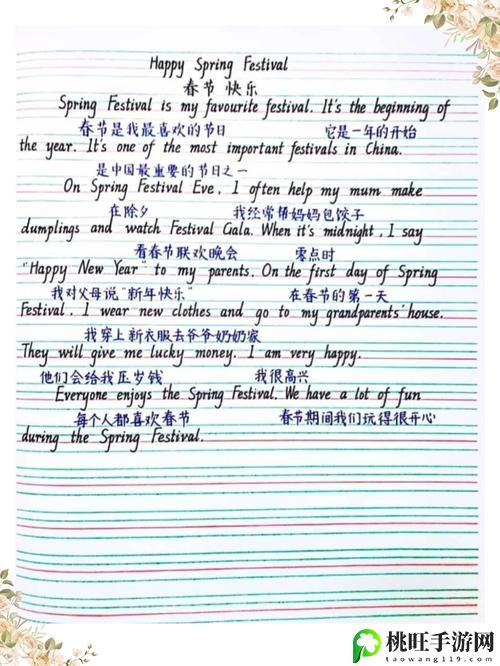 Happy Spring Festival
春节 快乐
Spring Festival is my favourite festival. It's the beginning of
春节是我最喜欢的节日 它是一年的开始
the year. It's one of the most important festivals in China.
是中国最重要的节日之一
On Spring Festival Eve, I often help my mum make
在除夕 我经常帮妈妈包饺子
dumplings and watch Festival Gala. When it's midnight, I say
看春节联欢晚会 零点时
"Happy New Year" to my parents. On the first day of Spring
我对父母说"新年快乐" 在春节的第一天
Festival, I wear new clothes and go to my grandparents' house.
我穿上新衣服去爷爷奶奶家
They will give me lucky money. I am very happy.
他们会给我压岁钱 我很高兴
Everyone enjoys the Spring Festival. We have a lot of fun
每个人都喜欢春节 春节期间我们玩得很开心
during the Spring Festival.
桃旺手游网
taowang119.com